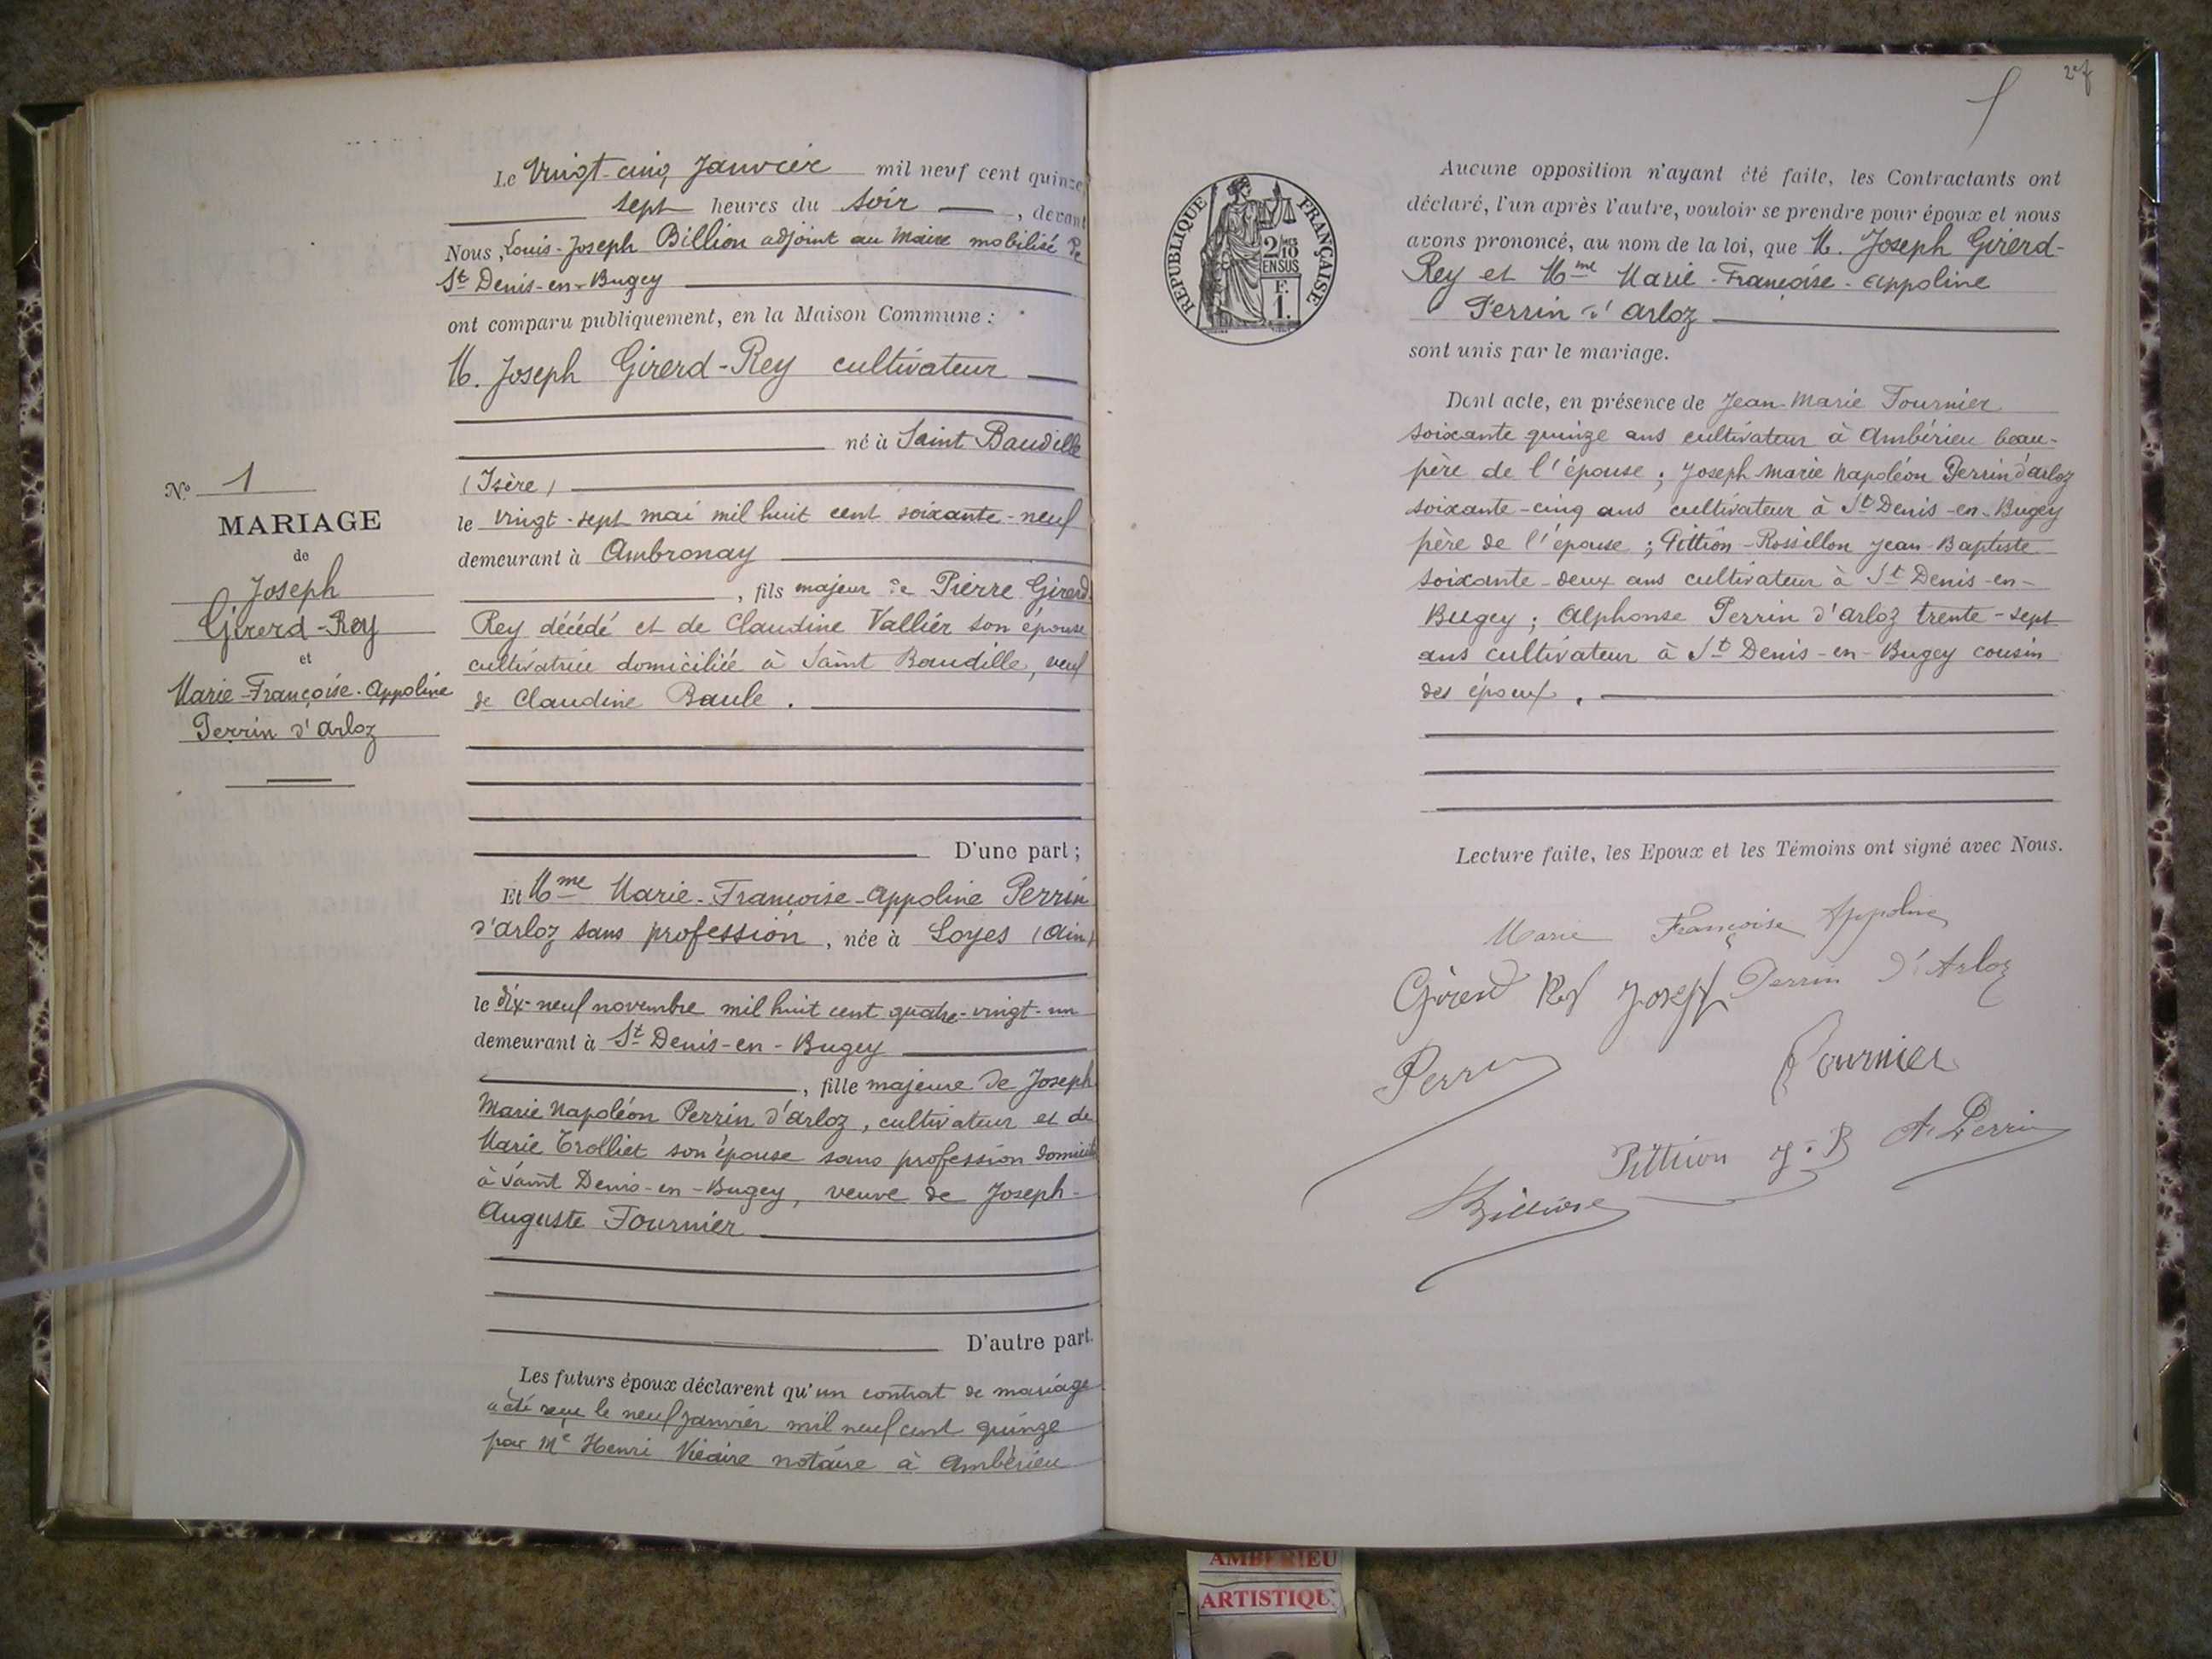 N° 1
MARIAGE
de
Joseph
Girerd-Rey
et
Marie-Françoise-Appoline
Perrin d'Arloz
Le Vingt-cinq Janvier mil neuf cent quinze
sept heures du soir, devant
Nous, Louis-Joseph Billion adjoint au Maire mobilisé de
St Denis-en-Bugey
ont comparu publiquement, en la Maison Commune :
M. Joseph Girerd-Rey cultivateur
né à Saint Baudille
(Isère)
le vingt-sept mai mil huit cent soixante-neuf
demeurant à Ambronay
, fils majeur de Pierre Girerd
Rey décédé et de Claudine Vallier son épouse
cultivatrice domiciliée à Saint Baudille, veuf
de Claudine Baule.
D'une part ;
Et Mme Marie-Françoise-Appoline Perrin
d'Arloz sans profession, née à Loyes (Ain)
le dix-neuf novembre mil huit cent quatre-vingt-un
demeurant à St Denis-en-Bugey
, fille majeure de Joseph
Marie Napoléon Perrin d'Arloz, cultivateur et de
Marie Trolliet son épouse sans profession domicilié
à Saint Denis-en-Bugey, veuve de Joseph-
Auguste Fournier
D'autre part.
Les futurs époux déclarent qu'un contrat de mariage
a été reçu le neuf janvier mil neuf cent quinze
par Me Henri Vicaire notaire à Ambérieu
2e f
RÉPUBLIQUE FRANÇAISE
2/10
EN SUS
F.
1.
Aucune opposition n'ayant été faite, les Contractants ont
déclaré, l'un après l'autre, vouloir se prendre pour époux et nous
avons prononcé, au nom de la loi, que M. Joseph Girerd-
Rey et Mme Marie-Françoise-Appoline
Perrin d'Arloz
sont unis par le mariage.
Dont acte, en présence de Jean-Marie Fournier
soixante quinze ans cultivateur à Ambérieu beau-
père de l'épouse ; Joseph Marie Napoléon Perrin d'Arloz
soixante-cinq ans cultivateur à St Denis-en-Bugey
père de l'épouse ; Pittion-Rossillon Jean-Baptiste
soixante-deux ans cultivateur à St Denis-en-
Bugey ; Alphonse Perrin d'Arloz trente-sept
ans cultivateur à St Denis-en-Bugey cousin
des époux.
Lecture faite, les Epoux et les Témoins ont signé avec Nous.
Marie Françoise Appoline
Girerd Rey Joseph Perrin d'Arloz
Perrin Fournier
Pittion J.B A. Perrin
Billion
AMBERIEU
ARTISTIQU